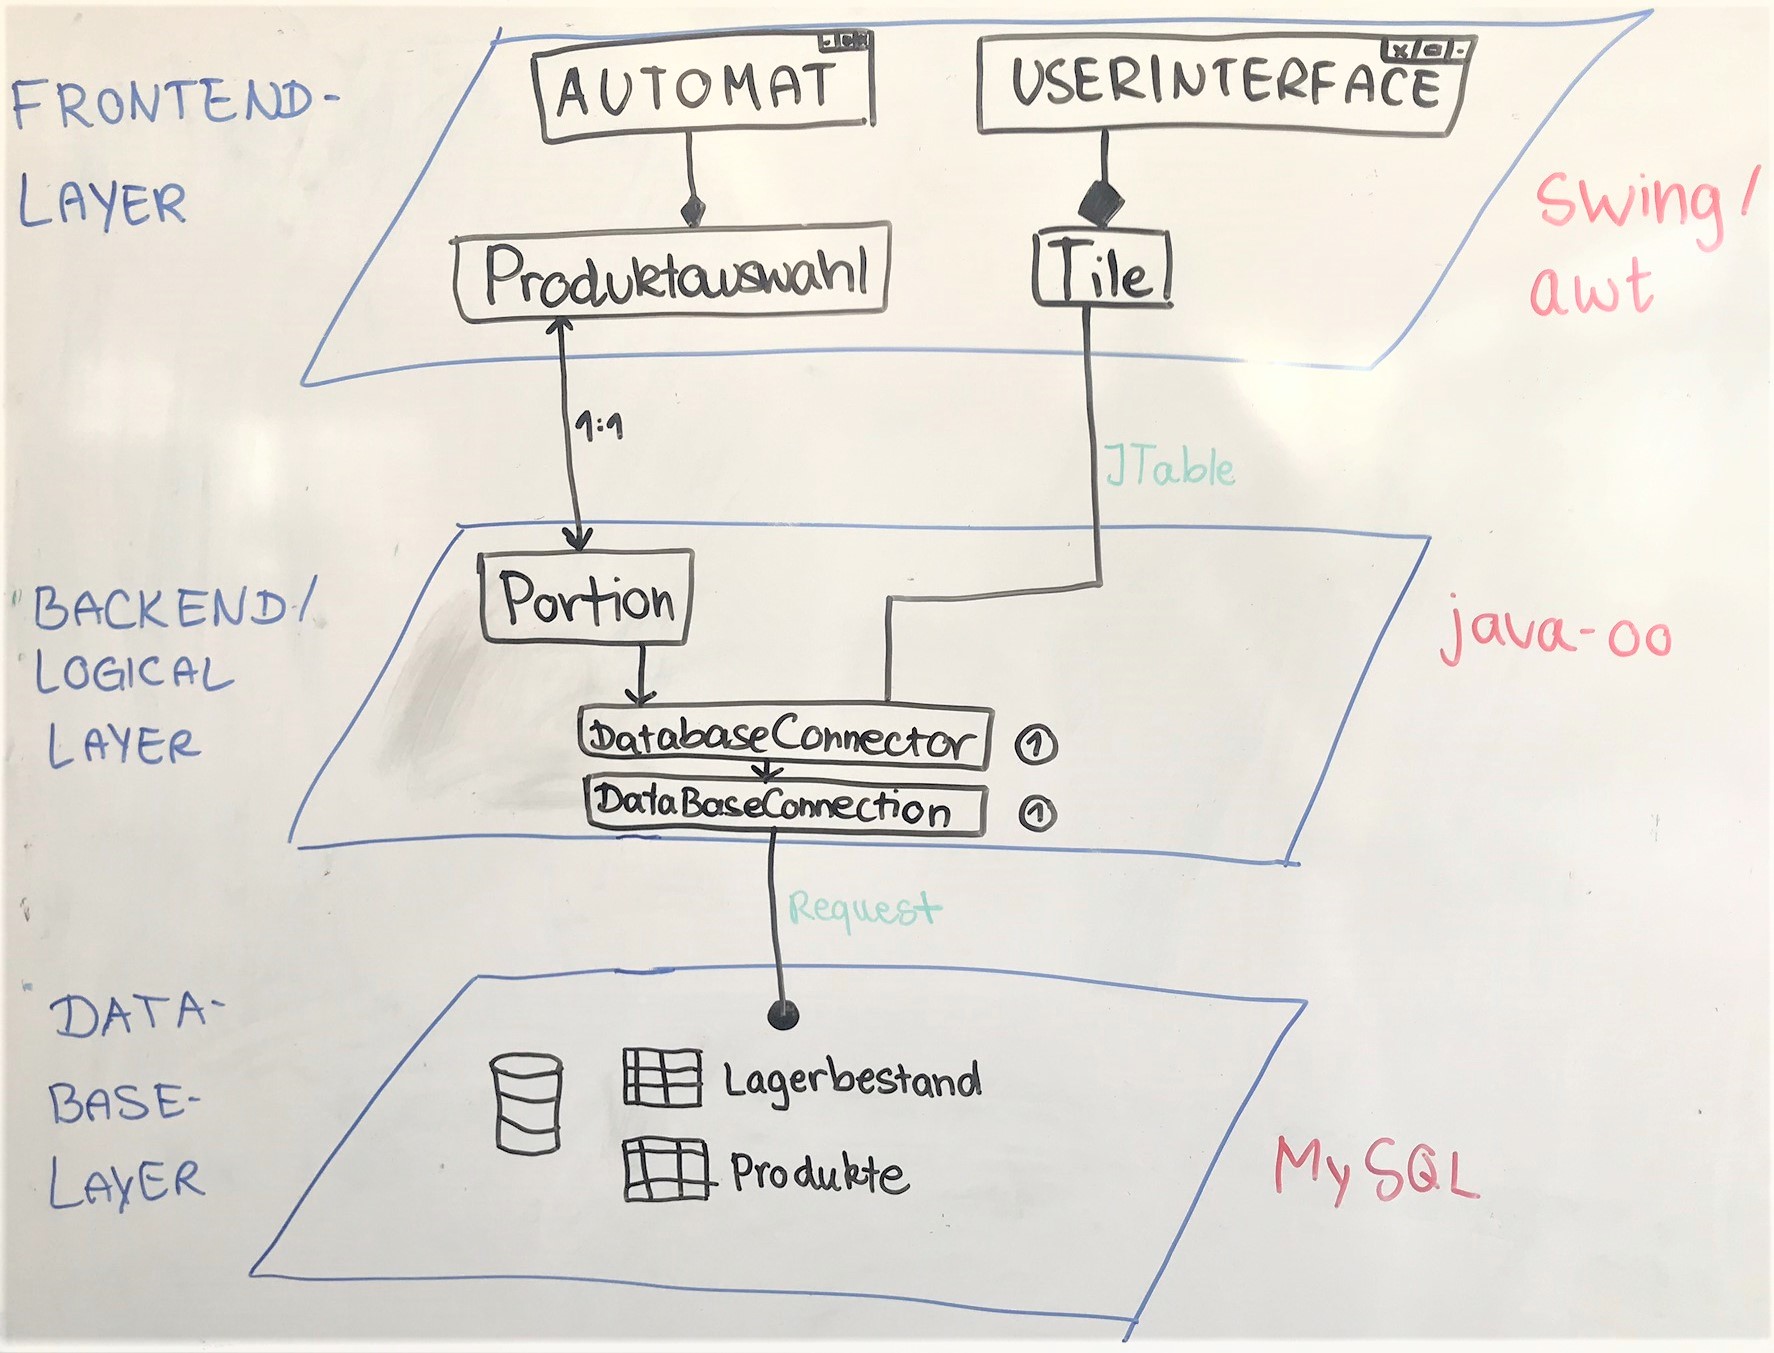 FRONTEND-
LAYER
AUTOMAT
USERINTERFACE
Produktauswahl
Tile
swing/
awt
1:1
JTable
BACKEND/
LOGICAL
LAYER
Portion
DatabaseConnector ①
DataBaseConnection ①
java-oo
Request
DATA-
BASE-
LAYER
Lagerbestand
Produkte
MySQL